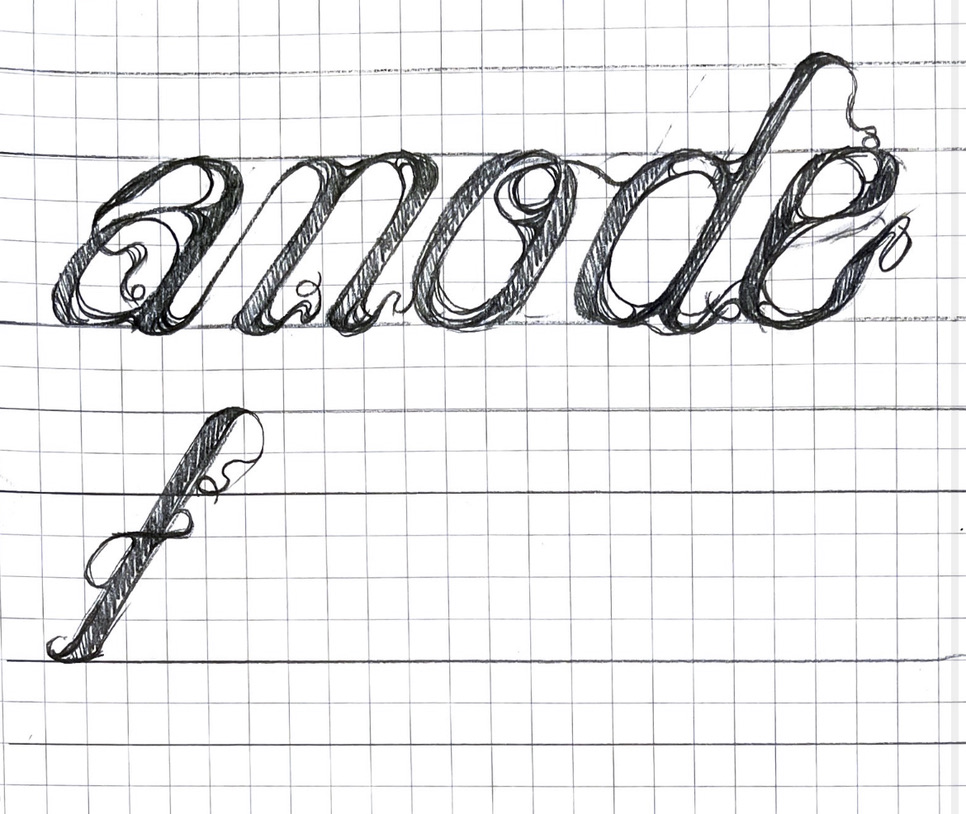 anode
f